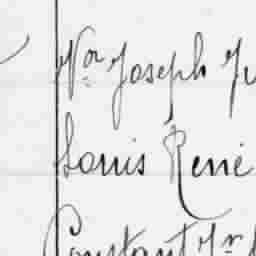 Nor Joseph
Louis René
Constant